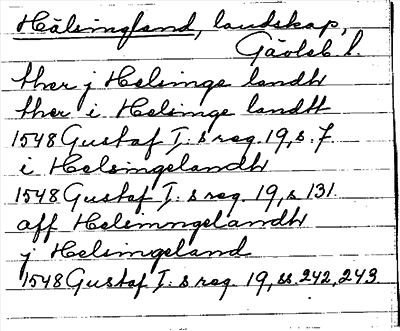 Hälsingland, landskap,
Gävleb. l.
ther j Helsinge landh
ther i Helsinge landh
1548 Gustaf I:s reg. 19, s. 7
i Helsingelandh
1548 Gustaf I:s reg. 19, s. 131.
aff Helsinngelandh
j Helsingeland
1548 Gustaf I:s reg. 19, ss. 242, 243